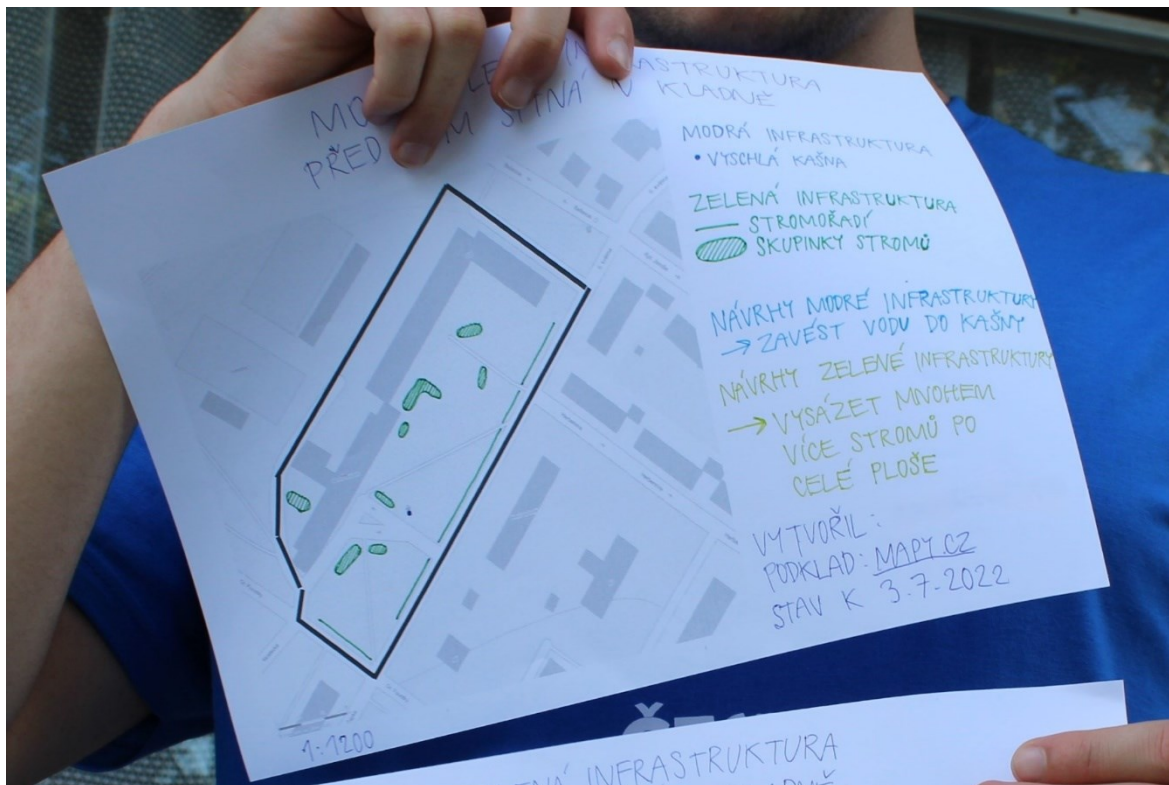 INFRASTRUKTURA
PŘED SÍTNÁ V KLADNĚ
MODRÁ INFRASTRUKTURA
• VYSCHLÁ KAŠNA
ZELENÁ INFRASTRUKTURA
STROMOŘADÍ
SKUPINKY STROMŮ
NÁVRHY MODRÉ INFRASTRUKTURY
→ ZAVÉST VODU DO KAŠNY
NÁVRHY ZELENÉ INFRASTRUKTURY
→ VYSÁZET MNOHEM
VÍCE STROMŮ PO
CELÉ PLOŠE
VYTVOŘIL:
PODKLAD: MAPY.CZ
STAV K 3.7.2022
1:1200
INFRASTRUKTURA